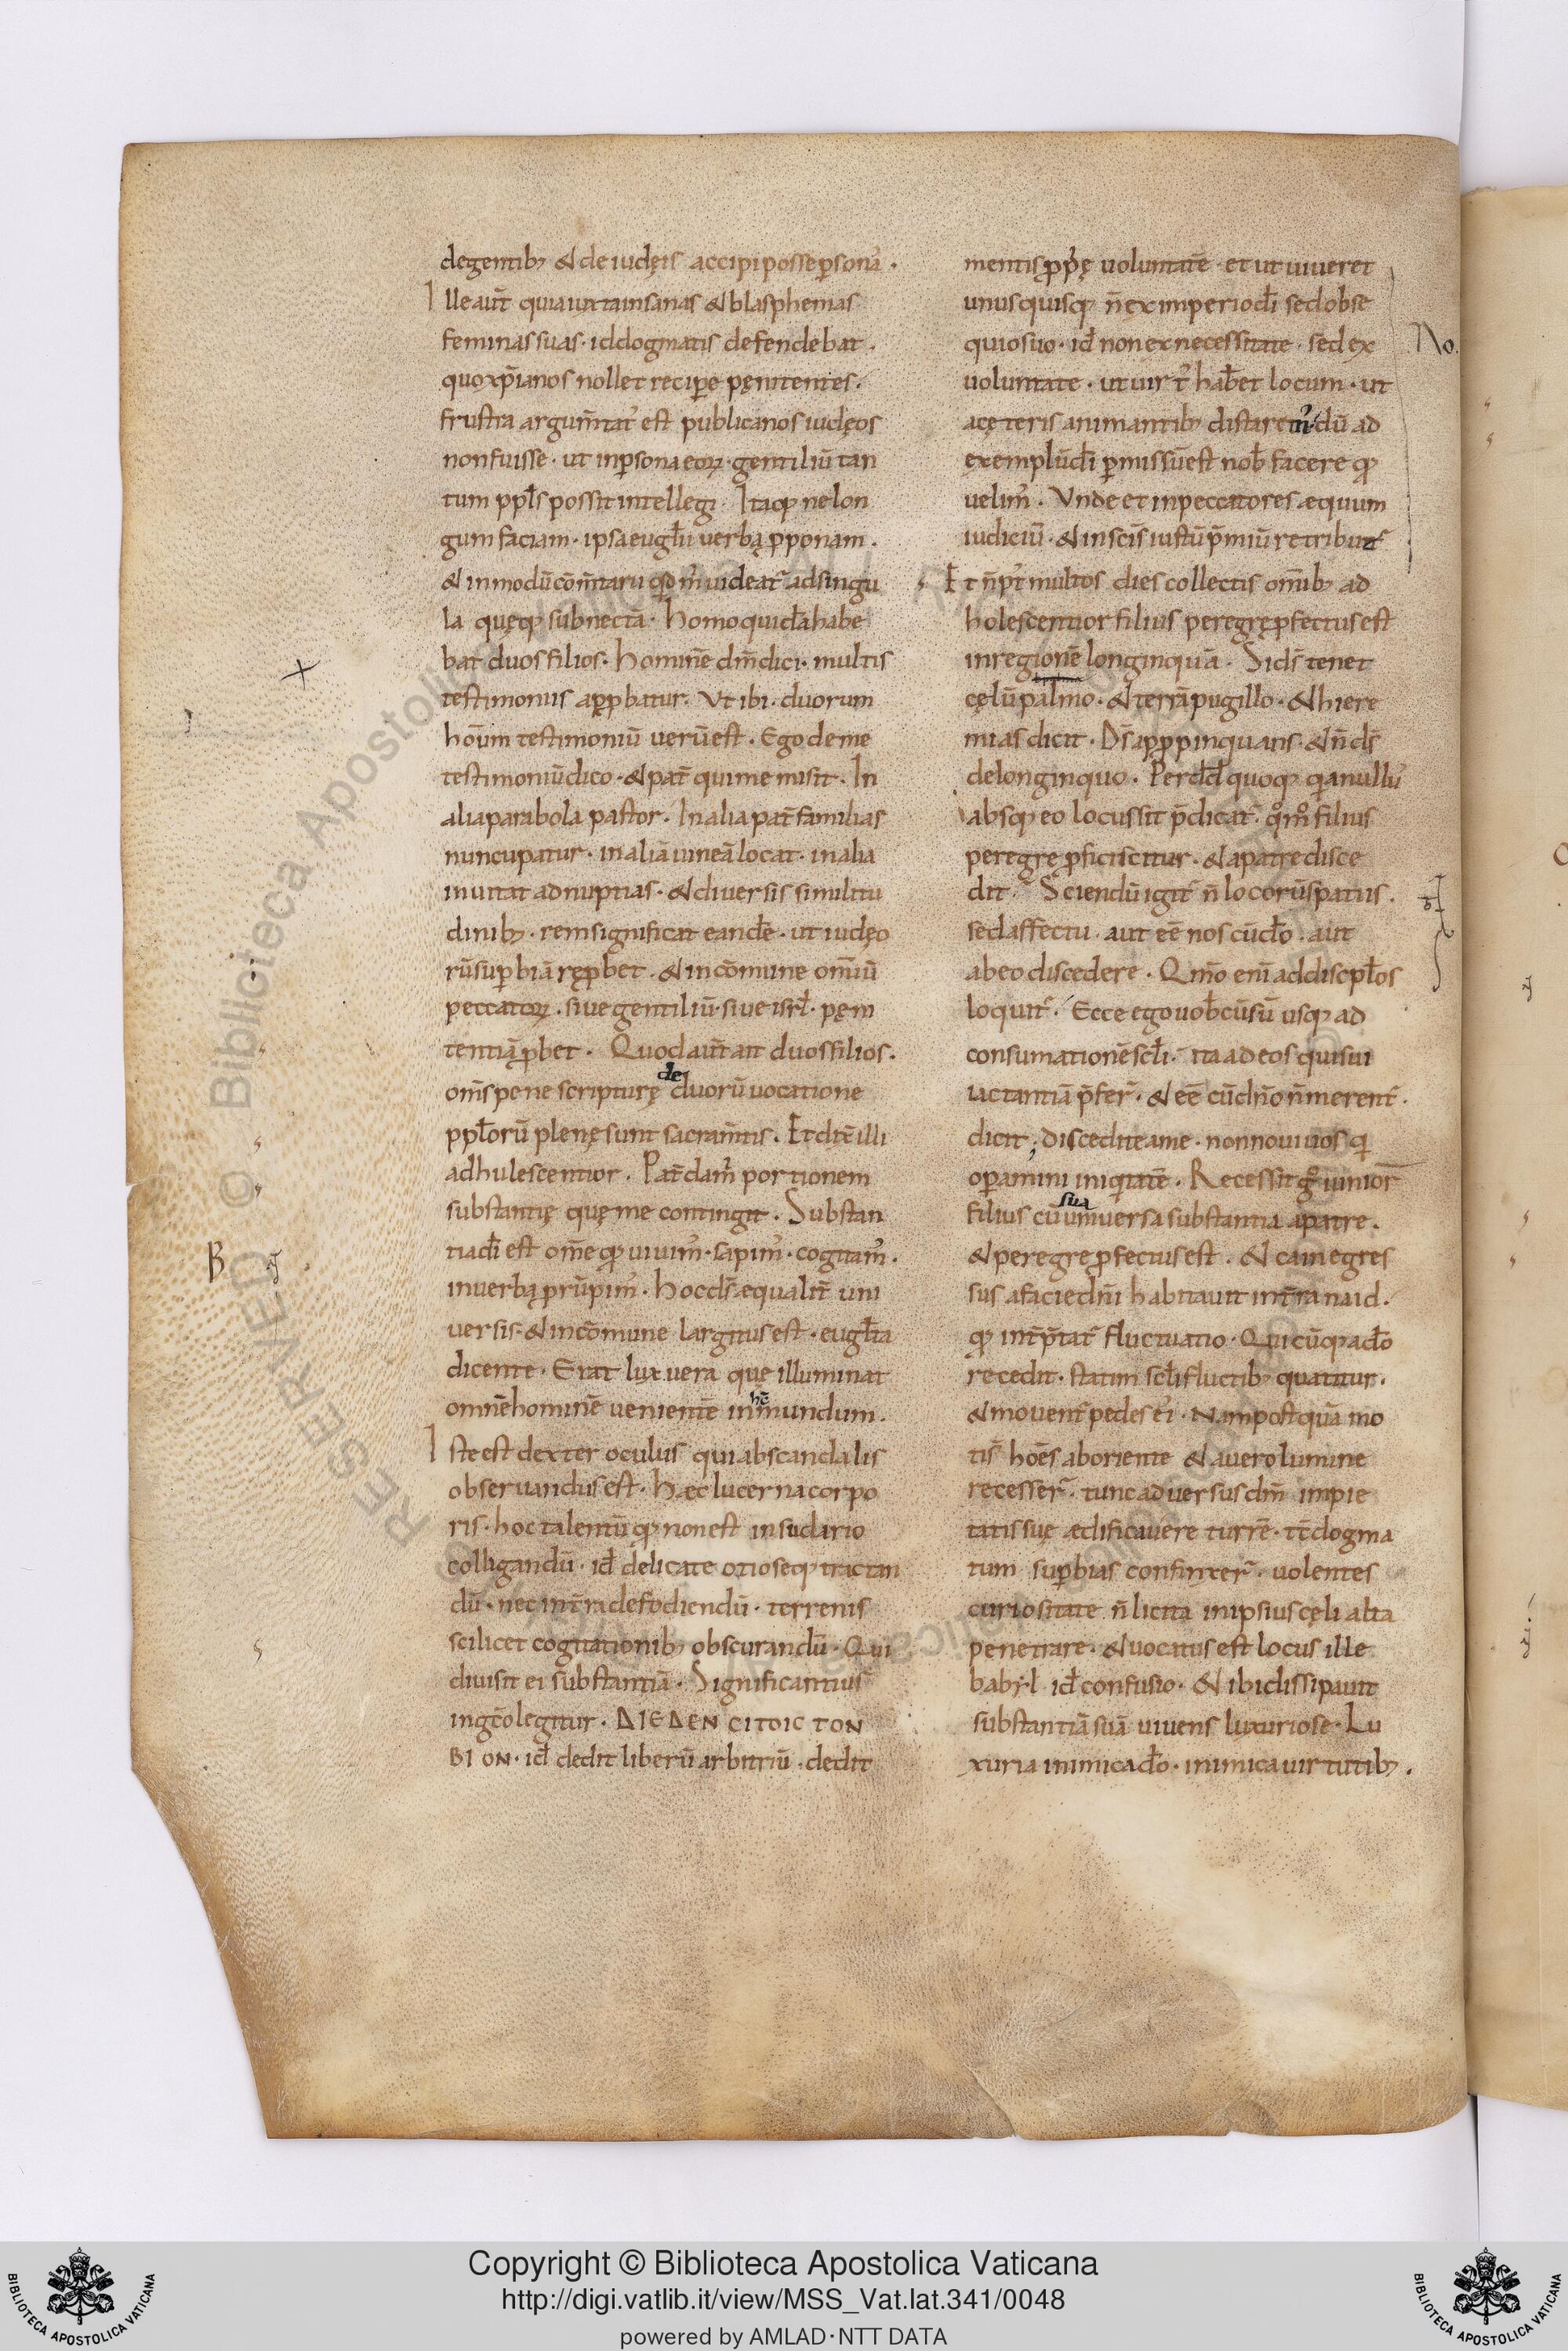 degentib; & de iudęis accipi posse psonā.
Ille aūt quia iuxta insanas & blasphemas
feminas suas. id dogmatis defendebat.
quo xp̄ianos nollet recipe pęnitentes.
frustra argum̄tat' est publicanos iudęos
non fuisse. ut in psona eoꝝ. gentiliū tan
tum ppl's possit intellegi. Itaq; ne lon
gum faciam. ipsa eugl̄ii verba pponam.
& in modū com̄tarii qd m' videat' ad singu
la quęq; subnectā. Homo quidā habe
bat duos filios. Hominē dn̄m dici. multis
testimoniis apprbatur. Ut ibi. duorum
hoīum testimoniū verū est. Ego de me
testimoniū dico. & pat̄ qui me misit. In
alia parabola pastor. In alia pat̄ familias
nuncupatur. in aliā vineā locat. in alia
invitat ad nuptias. & diversis similitu
dinib;. rem significat eandē. ut iudęo
rū supbiā reprbet. & in cōmune om̄iū
peccatoꝝ. sive gentiliū. sive isrl̄. pęni
tentiā prbet. Quod aūt ait duos filios.
om̄s pene scripturę de duorū vocatione
ppl̄orū plenę sunt sacram̄tis. Et dix̄ illi
adhulescentior. Pat̄ da m' portionem
substantię quę me contingit. Substan
tia dī est om̄e q; vivim'. sapim'. cogitam'.
in verba prūpim'. Hoc d̄s æqualit̄ uni
versis. & in cōmune largitus est. eugl̄ista
dicente. Erat lux vera quę illuminat
omnē hominē venientē in hc̄ mundum.
Iste est dexter oculus qui ab scandalis
observandus est. Hæc lucerna corpo
ris. hoc talentū q; non est in sudario
colligandū. id delicate otioseq; tractan
dū. nec in t̄ra defodiendū. terrenis
scilicet cogitationib; obscurandū. Qui
divisit ei substantiā. Significantius
in gc̄o legitur. ΔΙΕΔΕΝ CITOIC TON
BI ON. id dedit liberū arbitriū. dedit
mentis pp̄rię voluntatē. et ut viveret
unusquisq; n̄ ex imperio dī sed obse
quio suo. id non ex necessitate. sed ex
voluntate. ut virt' habet locum. ut
a cęteris animantib; distarem'. dū ad
exemplū dī pmissū est nob̄ facere q;
velim'. Unde et in peccatores æquum
iudiciū. & in sc̄is iustū p̄miū retribuet'
Et n̄ p't multos dies collectis omnib; ad
holescentior filius peregrę pfectus est
in regionē longinquā. Si d̄s tenet
cęlū palmo. & terrā pugillo. & hiere
mias dicit. D̄s apppinquans. & n̄ d̄s
de longinquo. Per dd̄ quoq; q̄a nullus
absq; eo locus sit p̄dicat. qm̄o filius
peregrę pficiscitur. & a patre disce
dit. Sciendū igit' n̄ locorū spatiis.
sed affectu. aut eē nos cū dō. aut
ab eo discedere. Qm̄o eni ad discipl̄os
loquit'. Ecce ego vob̄cū sū usq; ad
consumationē scl̄i. ita ad eos qui sui
iactantiā p̄fer'. & eē cū dn̄o n̄ merent'.
dicit; Discedite a me. non novi vos q̄
opamini iniq̄tatē. Recessit g° iunior
filius cū universa sua substantia a patre.
& peregre pfectus est. & cain egres
sus a facie dn̄i habitavit in t̄ra naid.
q; int̄p̄tat' fluctuatio. Quicūq; a dō
recedit. statim scl̄i fluctib; quatitur.
& movent' pedes ei'. Nam postquā mo
ti s̄ hoēs ab oriente & a vero lumine
recesser'. tunc adversus dm̄ impie
tatis suę ædificavere turrē. tc̄ dogma
tum supbias confinxer'. volentes
curiositate n̄ licita in ipsius cęli alta
penetrare. & vocatus est locus ille
babyl id confusio. & ibi dissipavit
substantiā suā vivens luxuriose. Lu
xuria inimica dō. inimica virtutib;.
No.
B
Copyright © Biblioteca Apostolica Vaticana
http://digi.vatlib.it/view/MSS_Vat.lat.341/0048
powered by AMLAD·NTT DATA
BIBLIOTECA APOSTOLICA VATICANA
BIBLIOTECA APOSTOLICA VATICANA